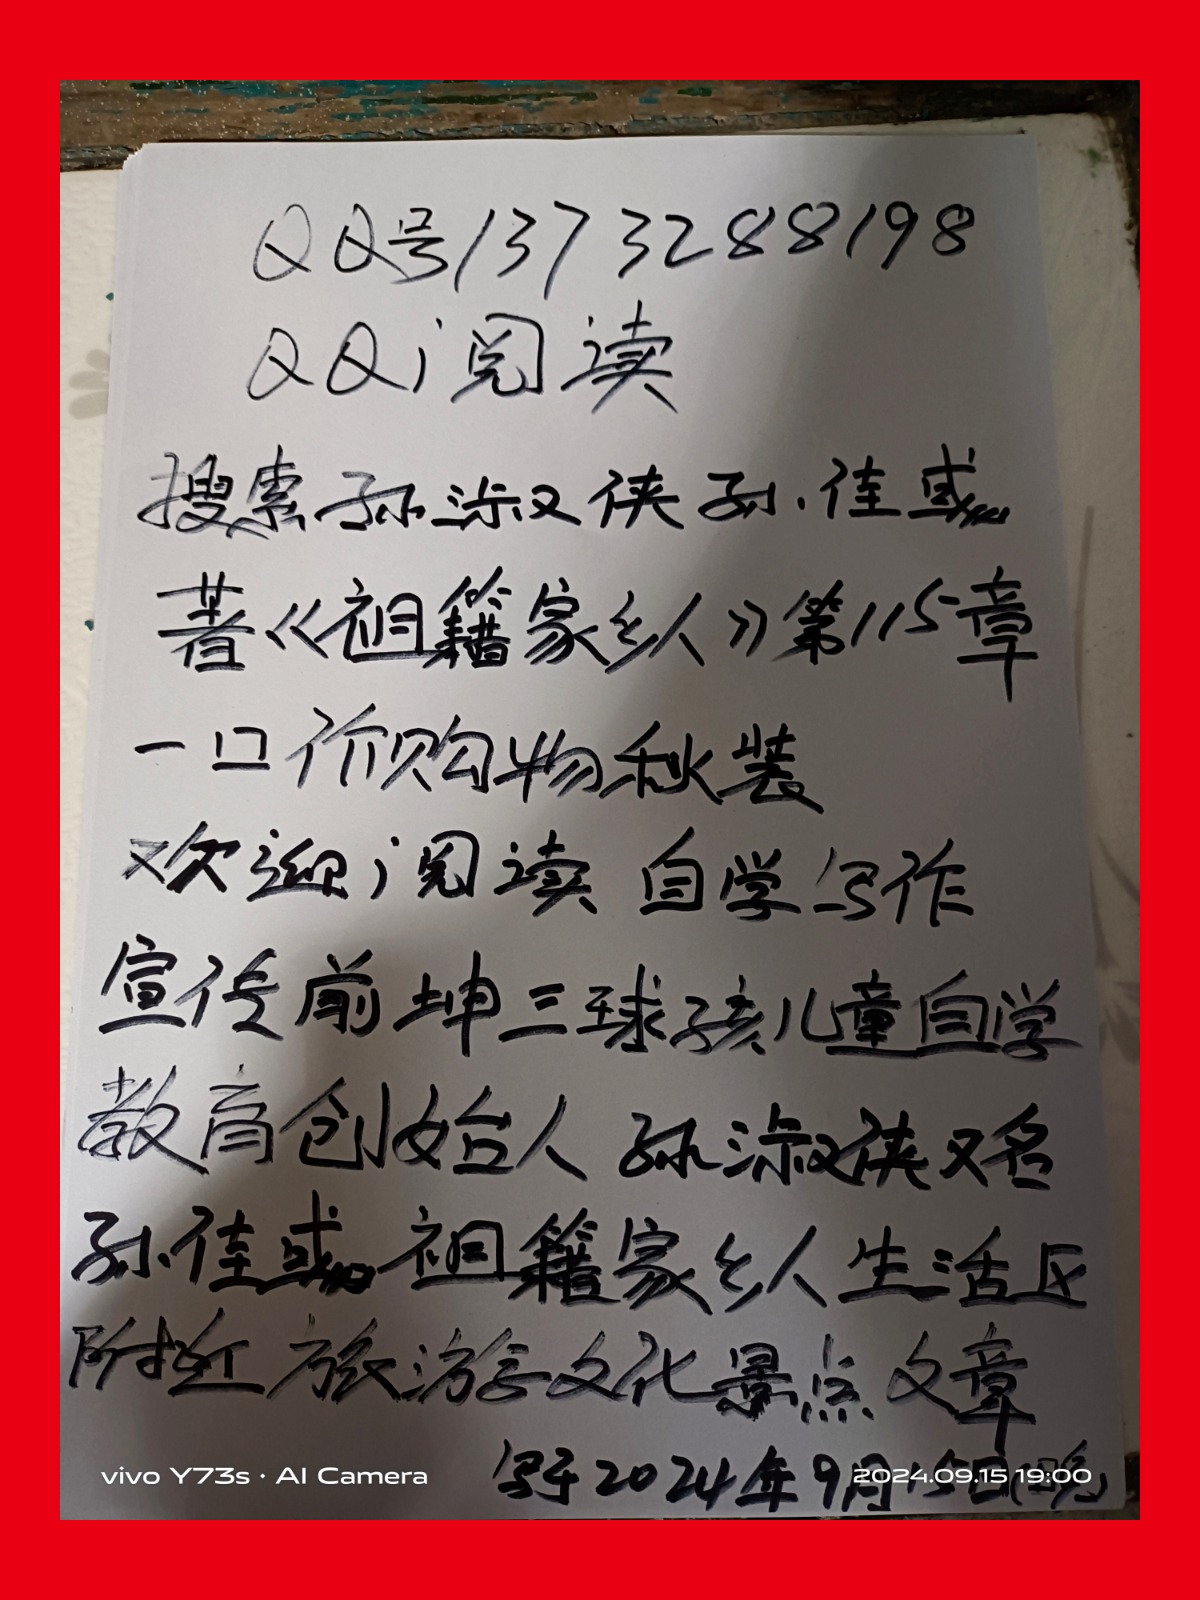 QQ号1373288198
QQ阅读
搜索孙淑侠孙佳
著《祖籍家乡人》第115章
一口价购物秋装
欢迎阅读 自学写作
宣传前坤三球孩儿童自学
教育创始人 孙淑侠又名
孙佳 祖籍家乡人生活区
附近旅游文化景点文章
写于2024年9月15日(晚)
vivo Y73s · AI Camera
2024.09.15 19:00